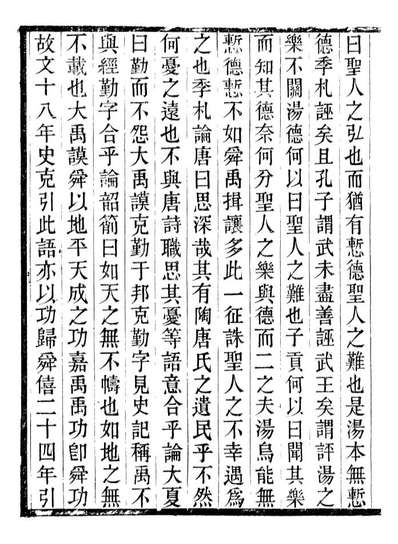 曰聖人之弘也而猶有慙德聖人之難也是湯本無慙
德季札誣矣且孔子謂武未盡善誣武王矣謂評湯之
樂不關湯德何以曰聖人之難也子貢何以曰聞其樂
而知其德奈何分聖人之樂與德而二之夫湯烏能無
慙德慙不如舜禹揖讓多此一征誅聖人之不幸遇爲
之也季札論唐曰思深哉其有陶唐氏之遺民乎不然
何憂之遠也不與唐詩職思其憂等語意合乎論大夏
曰勤而不怨大禹謨克勤于邦克勤字見史記稱禹不
與經勤字合乎論韶箾曰如天之無不幬也如地之無
不載也大禹謨舜以地平天成之功嘉禹禹功卽舜功
故文十八年史克引此語亦以功歸舜僖二十四年引